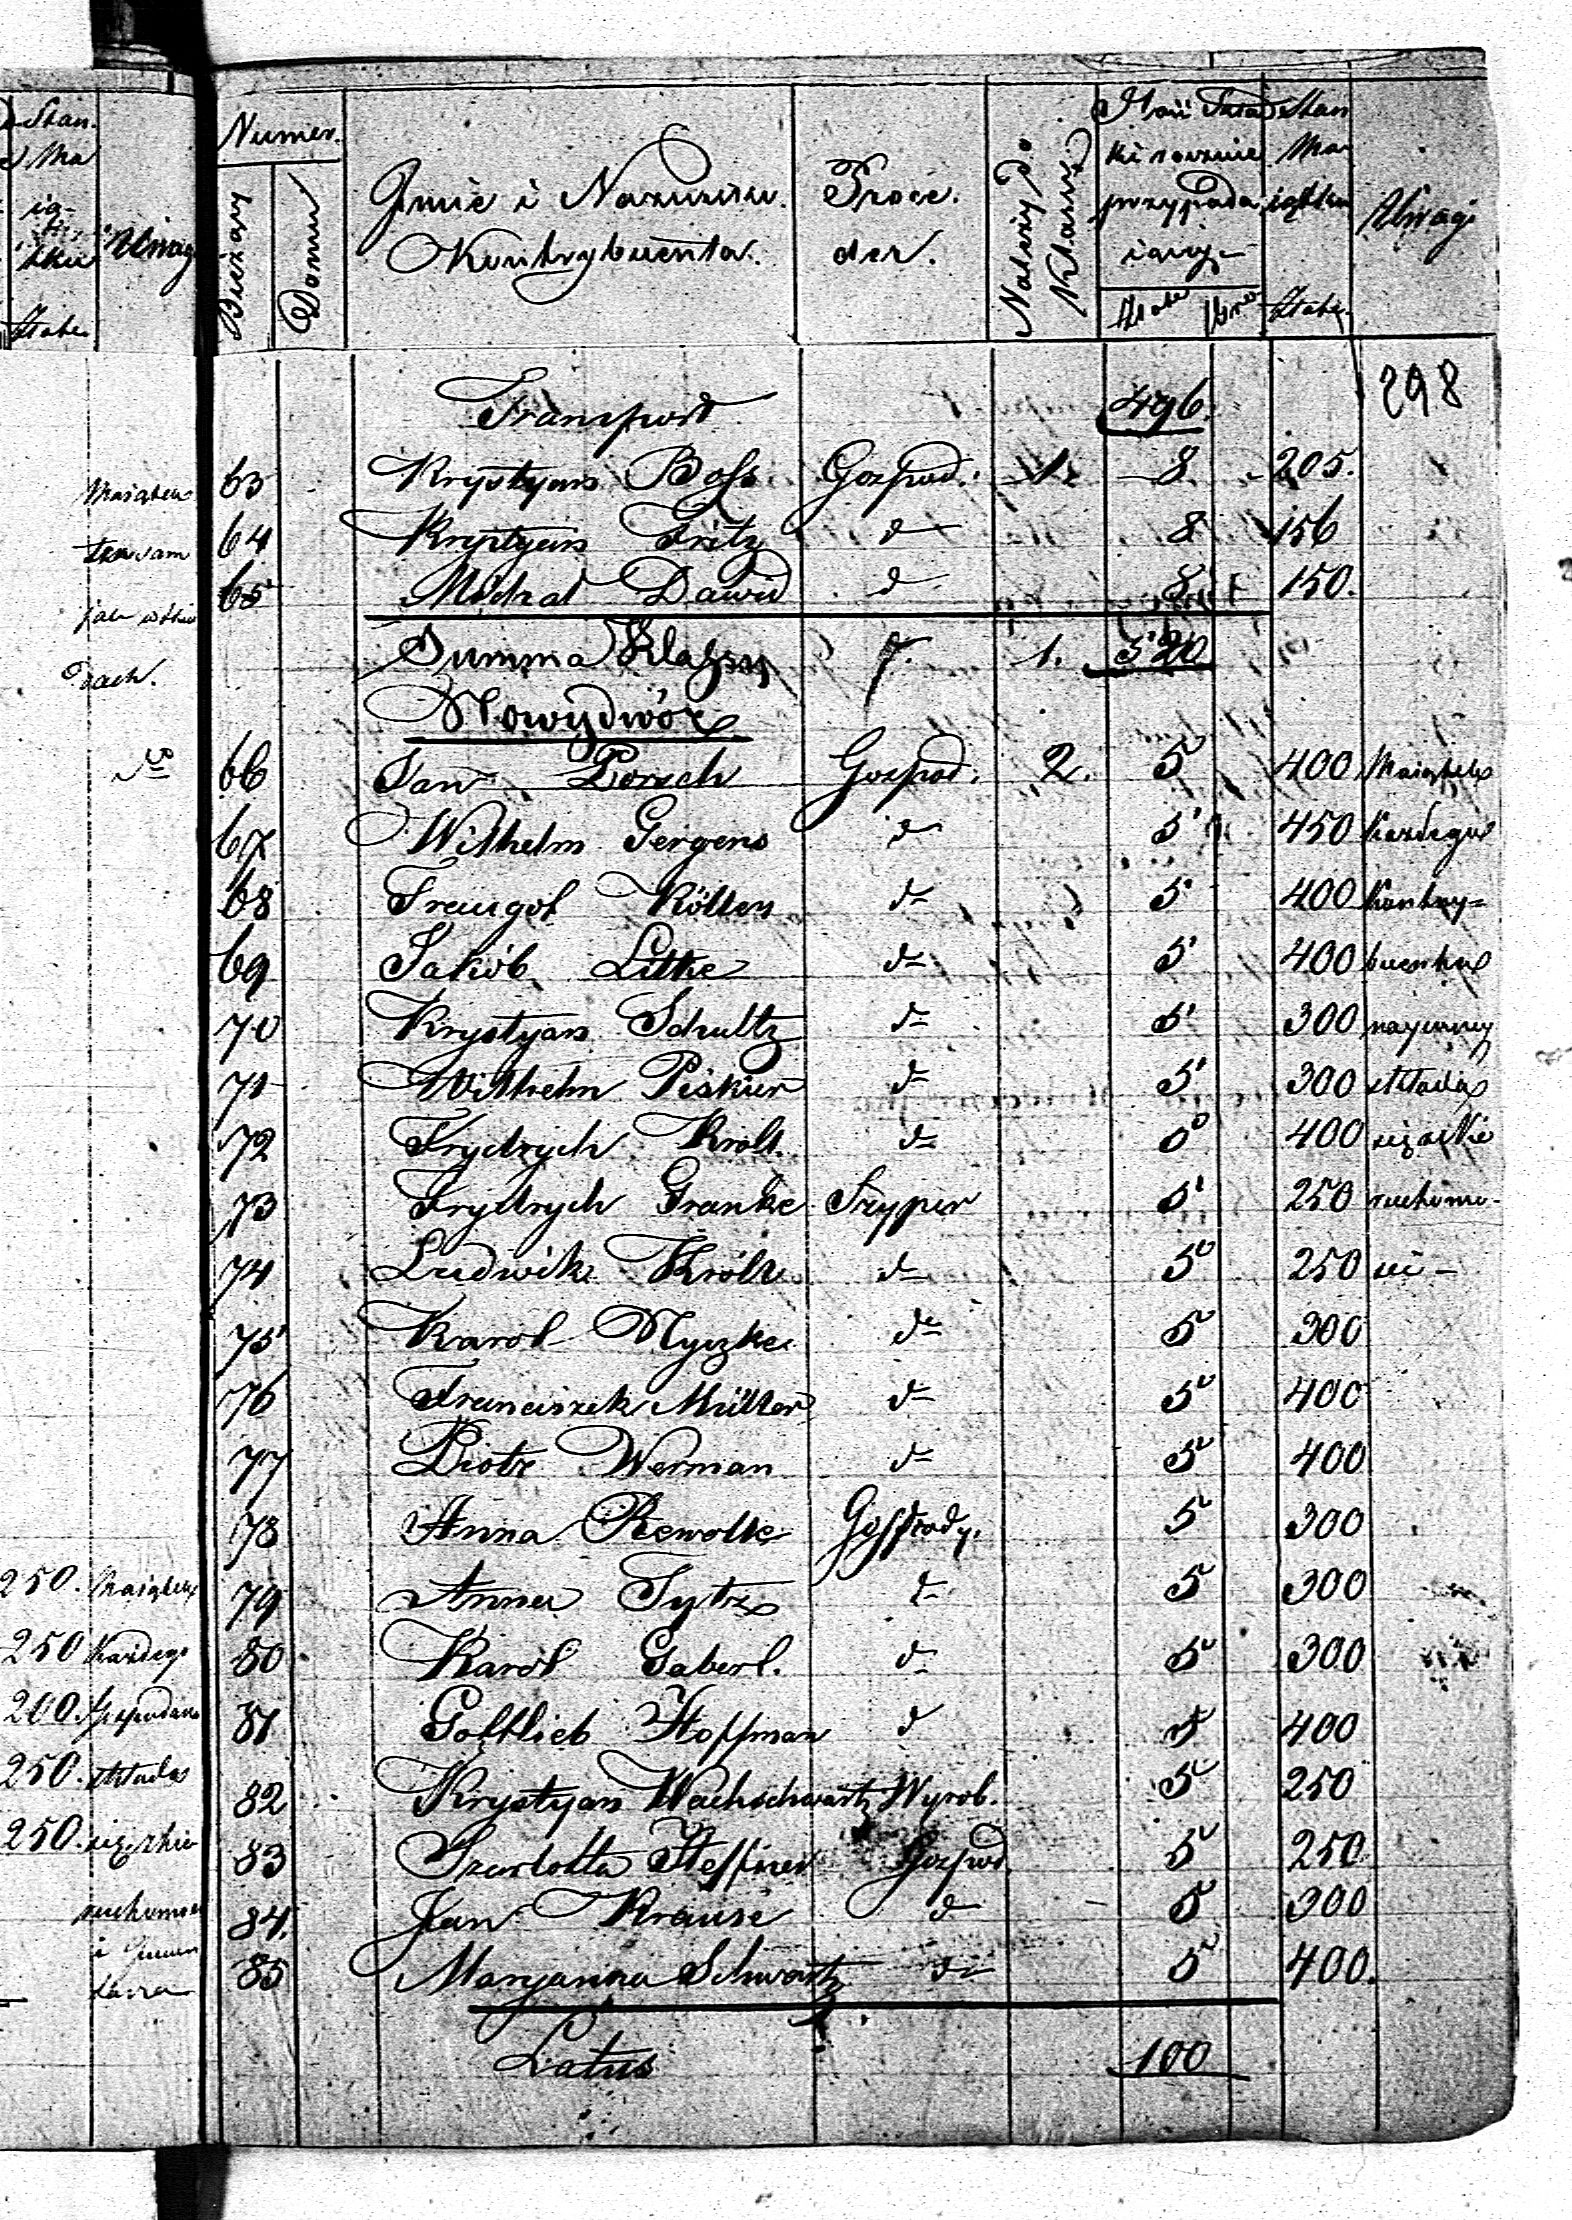 Stan
Ma
ią-
tku
Uwagi
Złote
Maiątek
ten sam
jak wska
Dach.
do
250. Maiątek
250 Każdego
200. Gospodarza
250. składa
250. się z
ruchomoś
i
Numer.
Bieżący
Domu
Imie i Nazwisko
Kontrybuenta.
Proce.
der.
Należy do
Klassy
Ilość Skład
ki rocznie
przypada
iącej
Złote
Gro
Stan
Ma
iątku
Złote.
Uwagi
Transport 496. 298
63 Krystyan Boss Gospod. 1. 8 - 205.
64 Krystyan Fritz d 8 156
65 Michal Dawid d 8 150.
Summa Klassy 1. 520
Nowydwór
66 Jan Porsch Gospod. 2. 5 400 Maiątek
67 Wilhelm Gergens d 5 450 Każdego
68 Traugot Költen d 5 400 Kontry=
69 Jakób Litke d 5 400 buenta
70 Krystyan Schultz d 5 300
71 Wilhelm Piskier d 5 300 składa
72 Frydrych Król. d 5 400 się
73 Frydrych Franke Szyper 5 250 ruchomo-
74 Ludwik Król d 5 250 sci -
75 Karol Nyczke d 5 300
76 Franciszek Müller d 5 400
77 Piotr Werman d 5 400
78 Anna Rewolke Gospody. 5 300
79 Anna Tytz d 5 300
80 Karol Gaberl. d 5 300
81 Gottlieb Hoffman d 5 400
82 Krystyan Wachschwartz Wyrob. 5 250
83 Szarlotta Heffner Gospod. 5 250
84. Jan Krause d - 5 300
85 Maryanna Schwartz d 5 400.
Latus 100